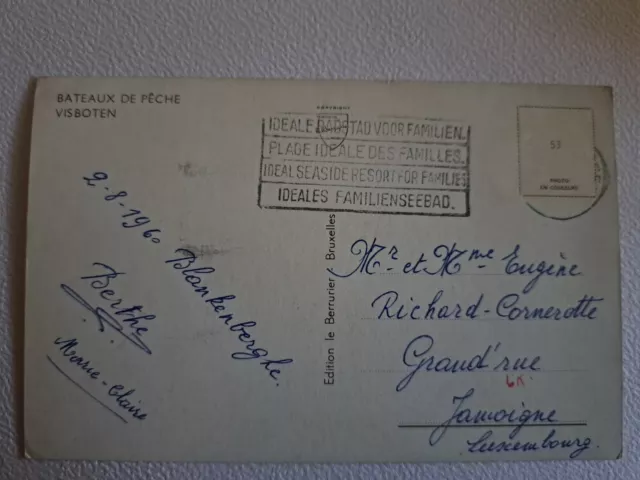 BATEAUX DE PÊCHE
VISBOTEN
COPYRIGHT
IDEALE BADSTAD VOOR FAMILIEN.
PLAGE IDEALE DES FAMILLES.
IDEAL SEASIDE RESORT FOR FAMILIES
IDEALES FAMILIENSEEBAD.
53
PHOTO
EN COULEURS
2-8-1960 Blankenberghe.
Berthe
Marie-Claire
Edition le Berrurier, Bruxelles
Mr et Mme Eugène
Richard-Cornerotte
Grand'rue
Jamoigne
Luxembourg.